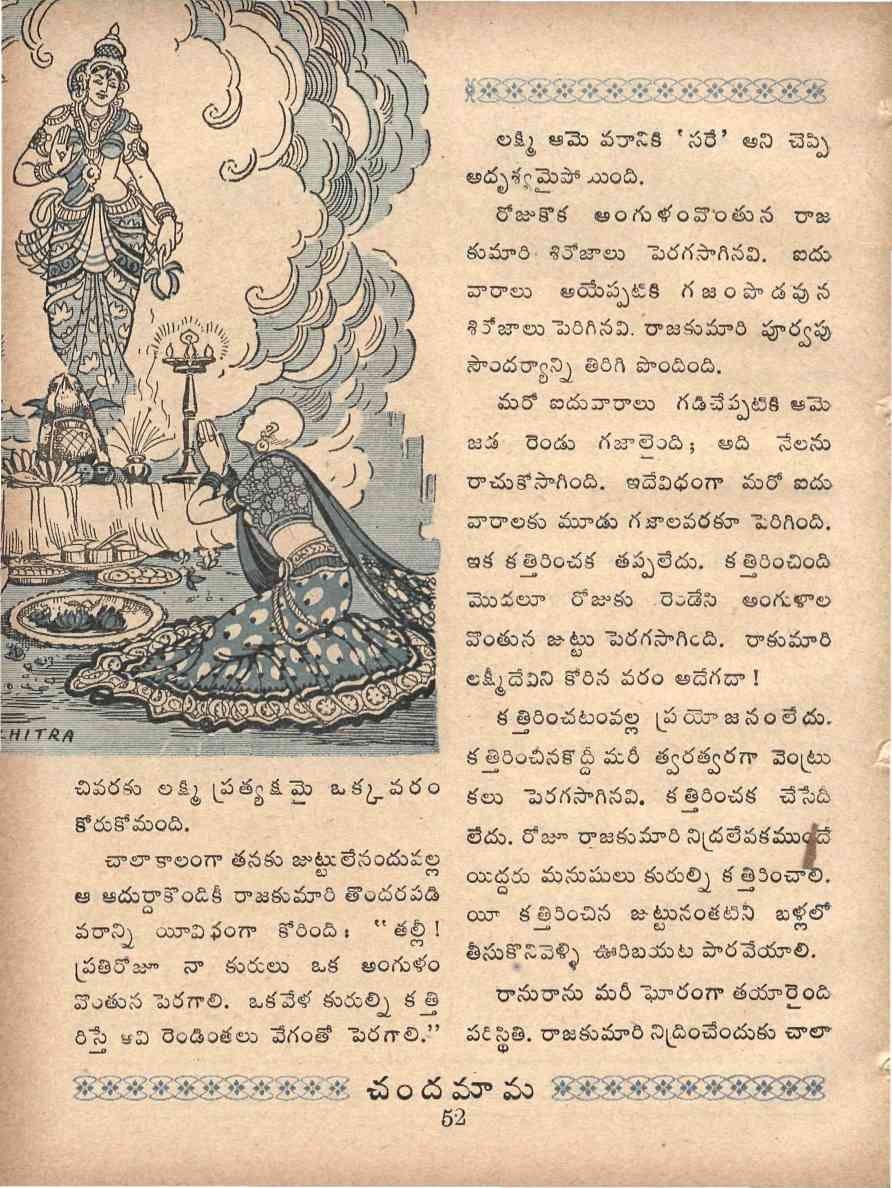 CHITRA
చివరకు లక్ష్మి ప్రత్యక్షమై ఒక్కవరం
కోరుకోమంది.
చాలాకాలంగా తనకు జుట్టులేనందువల్ల
ఆ ఆదుర్దాకొండికీ రాజకుమారి తొందరపడి
వరాన్ని యీవిధంగా కోరింది: “తల్లీ!
ప్రతిరోజూ నా కురులు ఒక అంగుళం
వొంతున పెరగాలి. ఒకవేళ కురుల్ని కత్తి
రిస్తే అవి రెండింతలు వేగంతో పెరగాలి.”
లక్ష్మి ఆమె వరానికి ‘సరే’ అని చెప్పి
అదృశ్యమైపోయింది.
రోజుకొక అంగుళంవొంతున రాజ
కుమారి శిరోజాలు పెరగసాగినవి. ఐదు
వారాలు అయేప్పటికి గజంపొడవున
శిరోజాలు పెరిగినవి. రాజకుమారి పూర్వపు
సౌందర్యాన్ని తిరిగి పొందింది.
మరో ఐదువారాలు గడిచేప్పటికి ఆమె
జడ రెండు గజాలైంది; ఆది నేలను
రాచుకోసాగింది. ఇదేవిధంగా మరో ఐదు
వారాలకు మూడు గజాలవరకూ పెరిగింది.
ఇక కత్తిరించక తప్పలేదు. కత్తిరించింది
మొదలూ రోజుకు రెండేసి అంగుళాల
వొంతున జుట్టు పెరగసాగింది. రాకుమారి
లక్ష్మీదేవిని కోరిన వరం అదేగదా!
కత్తిరించటంవల్ల ప్రయోజనంలేదు.
కత్తిరించినకొద్దీ మరీ త్వరత్వరగా వెంట్రు
కలు పెరగసాగినవి. కత్తిరించక చేసేది
లేదు. రోజూ రాజకుమారి నిద్రలేవకముందే
యిద్దరు మనుషులు కురుల్ని కత్తిరించాలి.
యీ కత్తిరించిన జుట్టునంతటినీ బళ్లలో
తీసుకొనివెళ్ళి ఊరిబయట పారవేయాలి.
రానురాను మరీ ఘోరంగా తయారైంది
పరిస్థితి. రాజకుమారి నిద్రించేందుకు చాలా
చందమామ
52